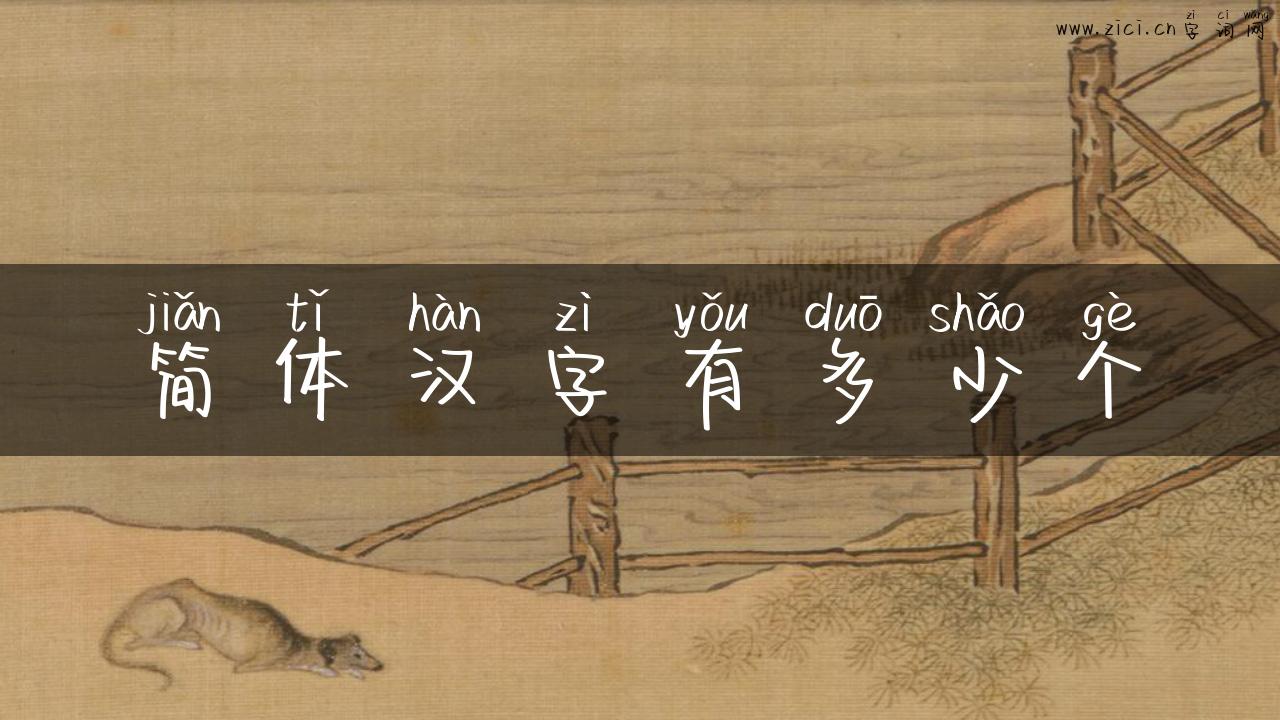 zì cí wǎng
www.zici.cn 字词网
jiǎn tǐ hàn zì yǒu duō shǎo gè
简体汉字有多少个